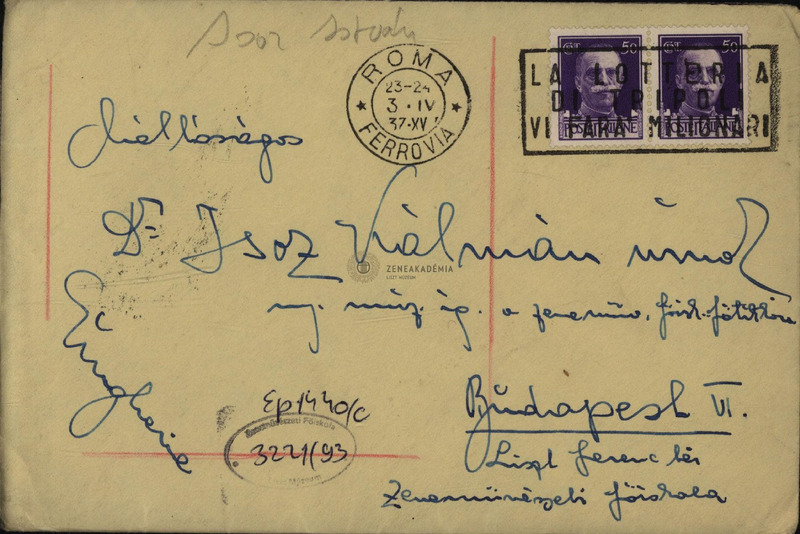 Isoz István
ROMA
23-24
3·IV
37·XV
FERROVIA
CT. 50 CT. 50
POSTE ITALIANE POSTE ITALIANE
LA LOTTERIA
DI TRIPOLI
VI FARA' MILIONARI
Méltóságos
Dr Isoz Kálmán úrnak
ZENEAKADÉMIA
LISZT MÚZEUM
ny. múz. ig. a zeneműv. főisk. főtitkára
Ungheria
Budapest VI.
Liszt Ferenc tér
Zeneművészeti főiskola
Ep1440/c
Zeneművészeti Főiskola
3221/93